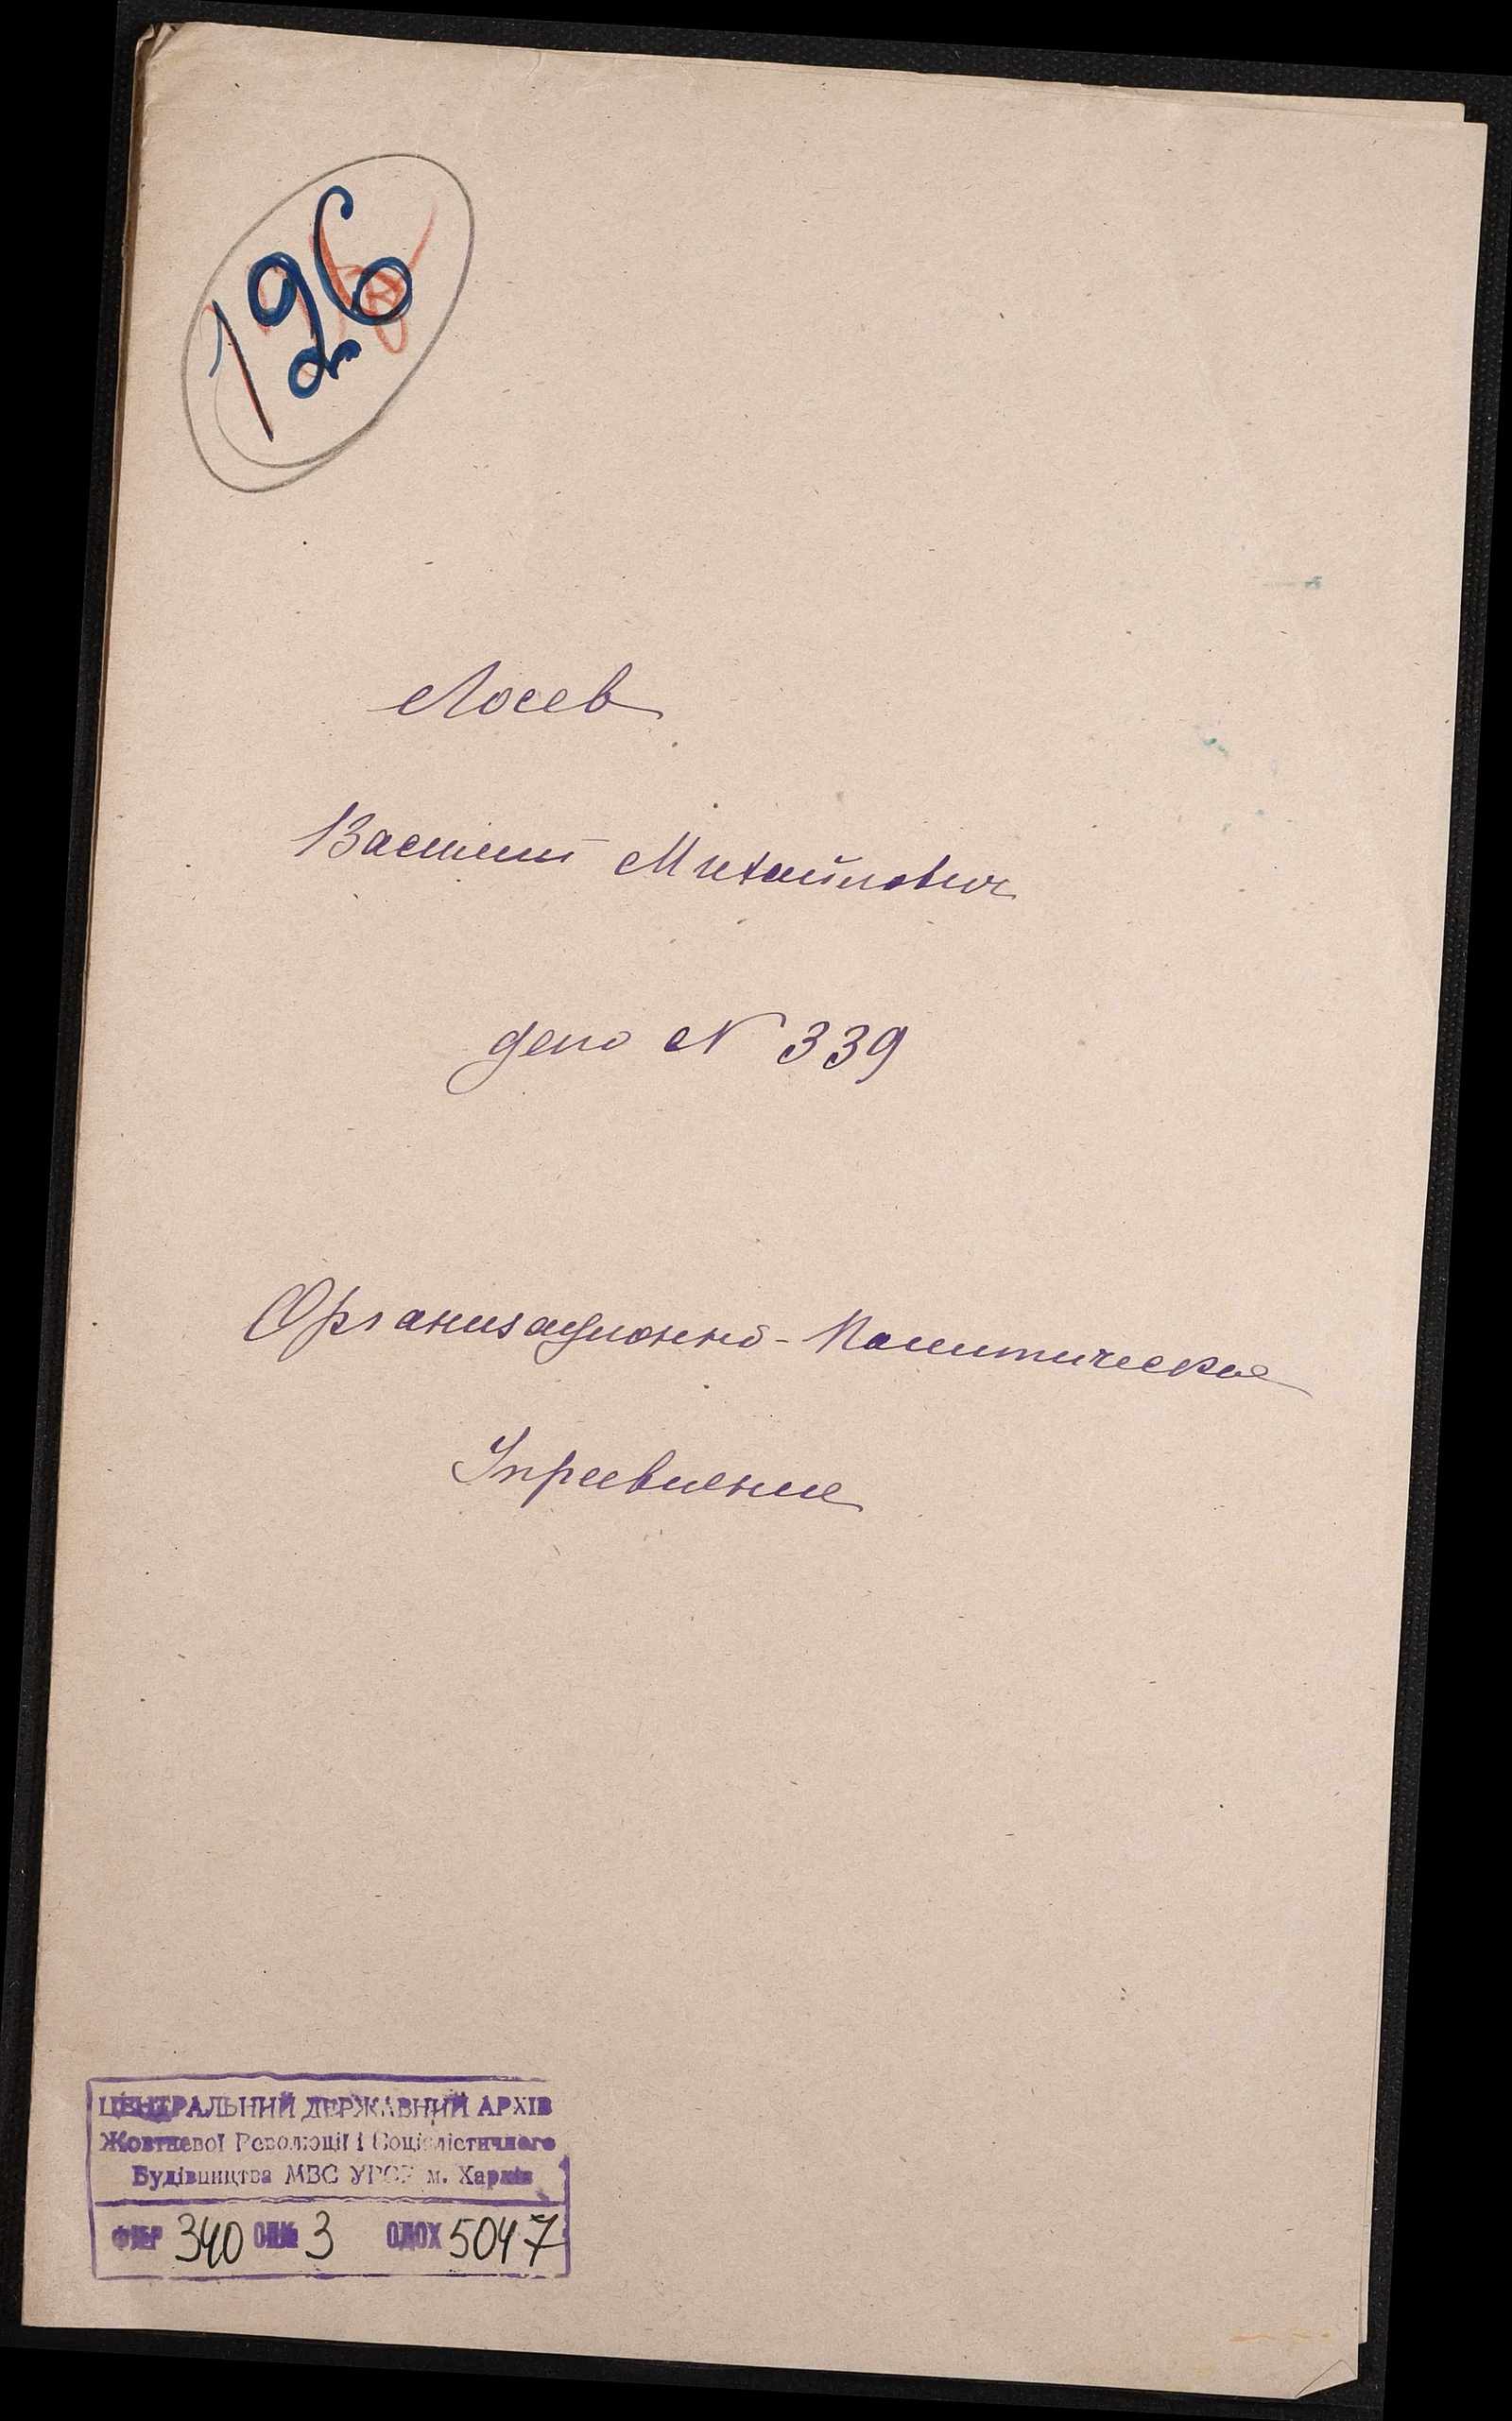 196
Лосев
Василий Михайлович
дело N 339
Организационно-Политическое
Управление
ЦЕНТРАЛЬНИЙ ДЕРЖАВНИЙ АРХІВ
Жовтневої Революції і Соціалістичного
Будівництва МВС УРСР м. Харків
ФР 340 ОП№ 3 ОДОХ 5047